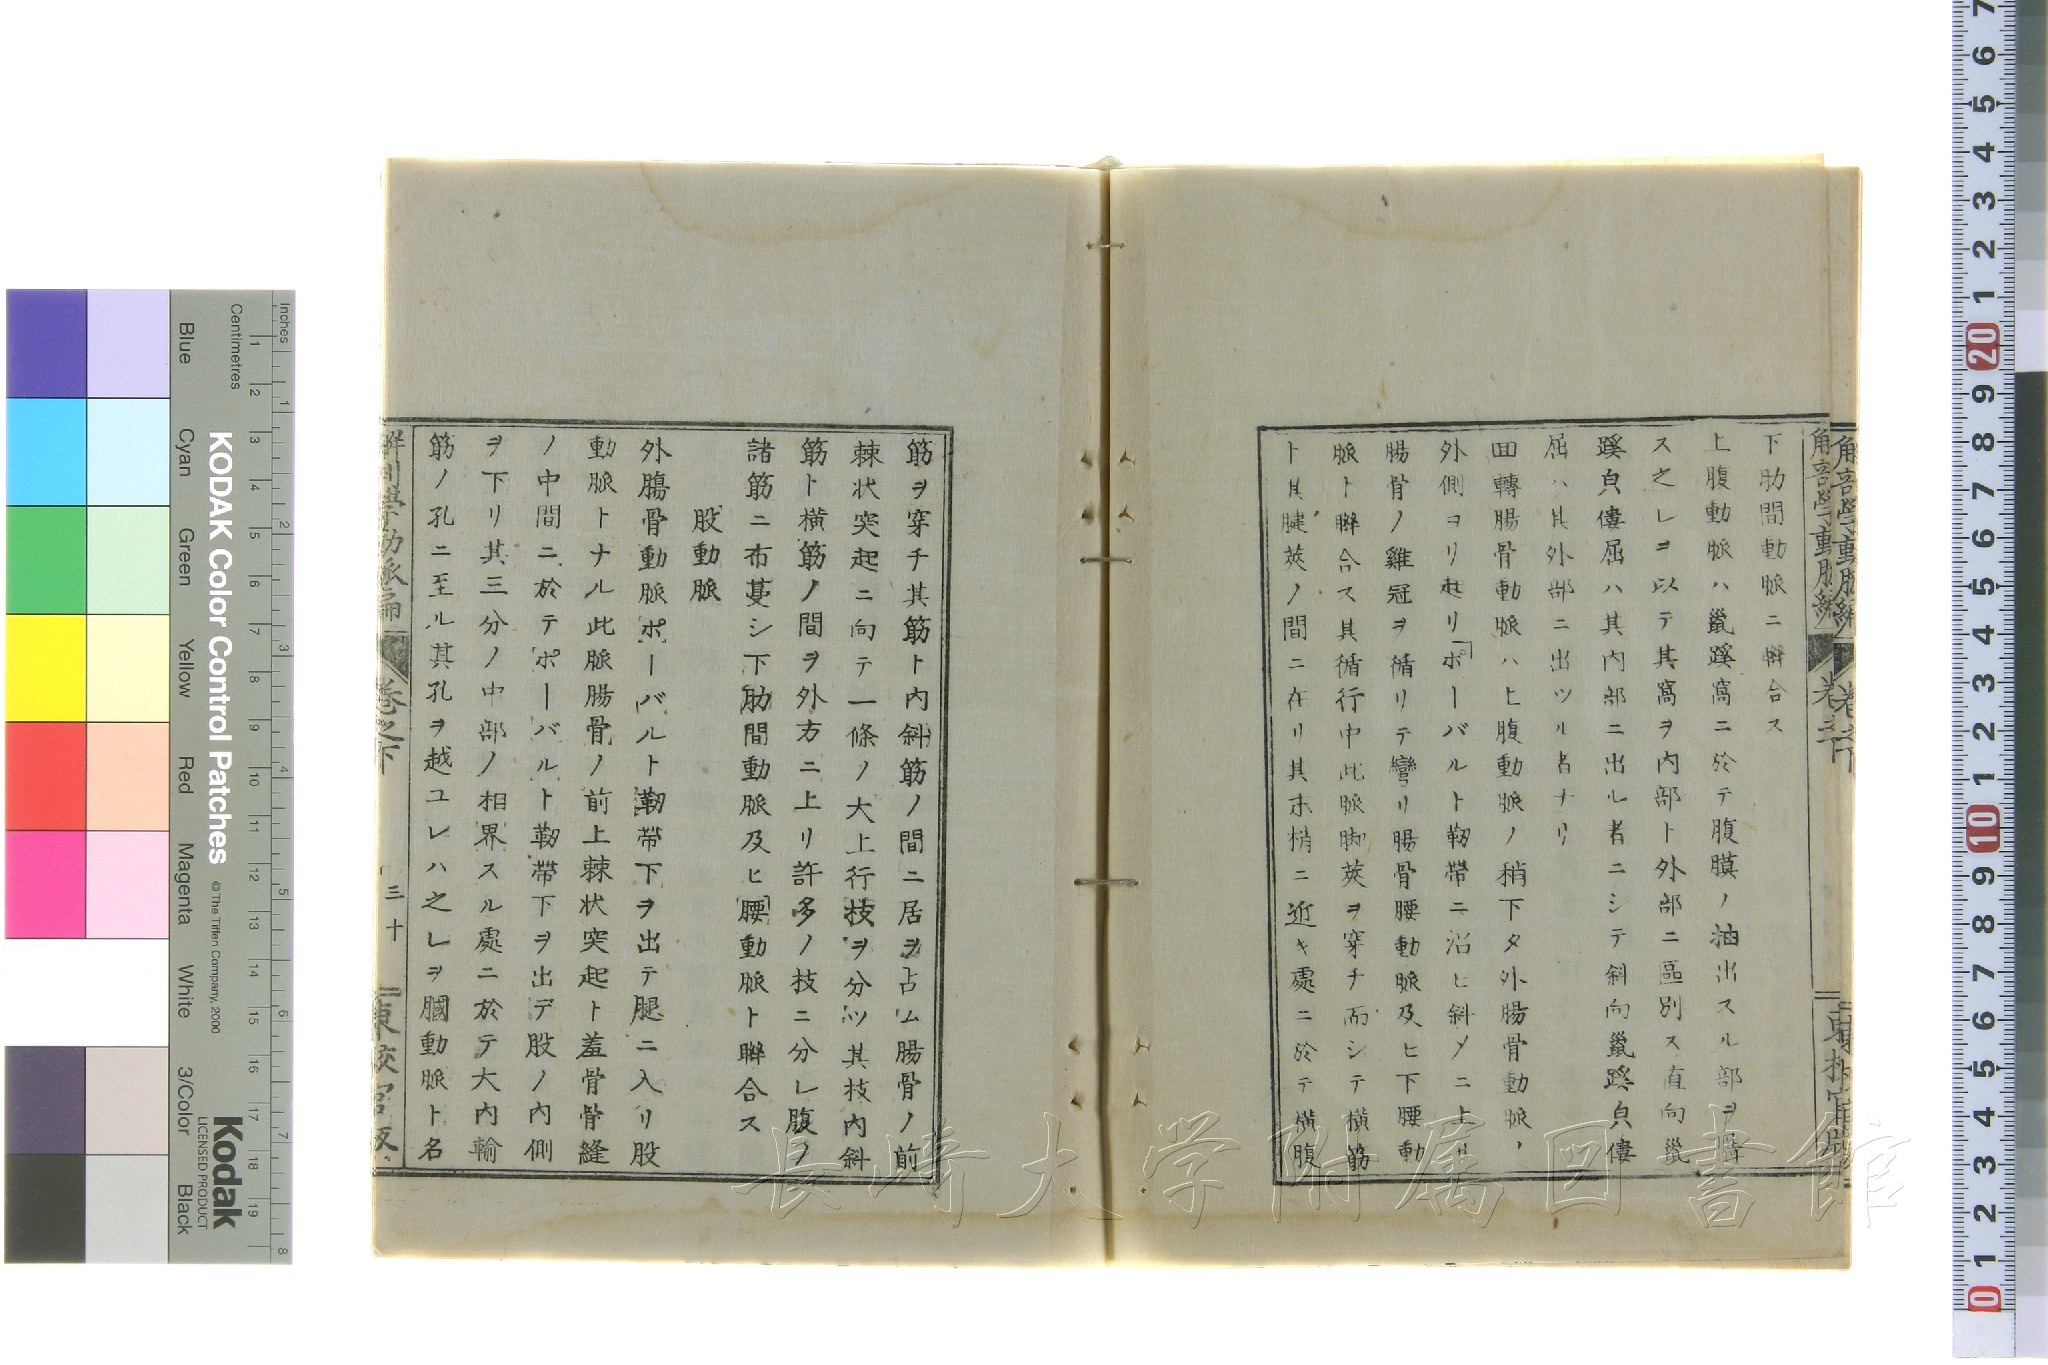 下肋間動脈ニ聨合ス
上腹動脈ハ鼠蹊窩ニ於テ腹膜ノ抽出スル部ヲ
ス之レヲ以テ其窩ヲ内部ト外部ニ區別ス直向鼠
蹊貟僂屈ハ其内部ニ出ル者ニシテ斜向鼠蹊貟僂
屈ハ其外部ニ出ツル者ナリ
回轉腸骨動脈ハ上腹動脈ノ稍下タ外腸骨動脈ノ
外側ヨリ起リ「ポーバルト靭帶ニ沿ヒ斜メニ上リ
腸骨ノ雞冠ヲ循リテ彎リ腸骨腰動脈及ヒ下腰動
脈ト聨合ス其循行中此脈脚莢ヲ穿チ而シテ横筋
ト其腱莢ノ間ニ在リ其末梢ニ近キ處ニ於テ横腹
筋ヲ穿チ其筋ト内斜筋ノ間ニ居ヲ占ム腸骨ノ前
棘状突起ニ向テ一條ノ大上行枝ヲ分ツ其枝内斜
筋ト横筋ノ間ヲ外方ニ上リ許多ノ技ニ分レ腹ノ
諸筋ニ布蔓シ下肋間動脈及ヒ腰動脈ト聨合ス
股動脈
外膓骨動脈ポーバルト靭帶下ヲ出テ腿ニ入リ股
動脈トナル此脈腸骨ノ前上棘状突起ト羞骨骨縫
ノ中間ニ於テポーバルト靭帶下ヲ出デ股ノ内側
ヲ下リ其三分ノ中部ノ相界スル處ニ於テ大内輸
筋ノ孔ニ至ル其孔ヲ越ユレハ之レヲ膕動脈ト名
解剖學動脈編 卷之下 三十 東校官版
長崎大学附属図書館
Inches
Centimetres
KODAK Color Control Patches
© The Tiffen Company, 2000
Kodak
LICENSED PRODUCT
Blue
Cyan
Green
Yellow
Red
Magenta
White
3/Color
Black